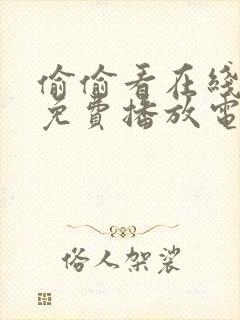 偷偷看在綫
免費播放電
俗人架裟